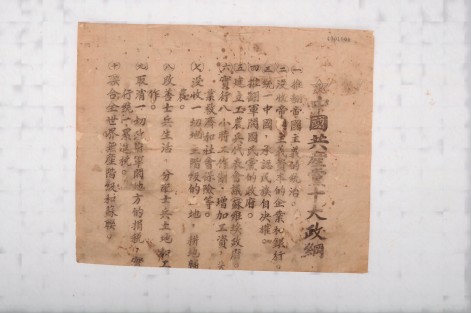 中國共產黨十大政綱
㈠推翻帝國主義的統治。
㈡没收帝國主義資本的企業和銀行
㈢統一中國,承認民族自决權。
㈣推翻軍閥國民黨的政府。
㈤建立工農兵代表會議蘇維埃政府
㈥實行八小時工作制,增加工資,
業救濟和社會保險等。
㈦没收一切地主階級的土地,耕地歸
農。
㈧改善士兵生活,分給士兵土地和工
作。
㈨取消一切政府軍閥地方的捐税,實
行統一累進税。
㈩聯合全世界無產階級和蘇聯。